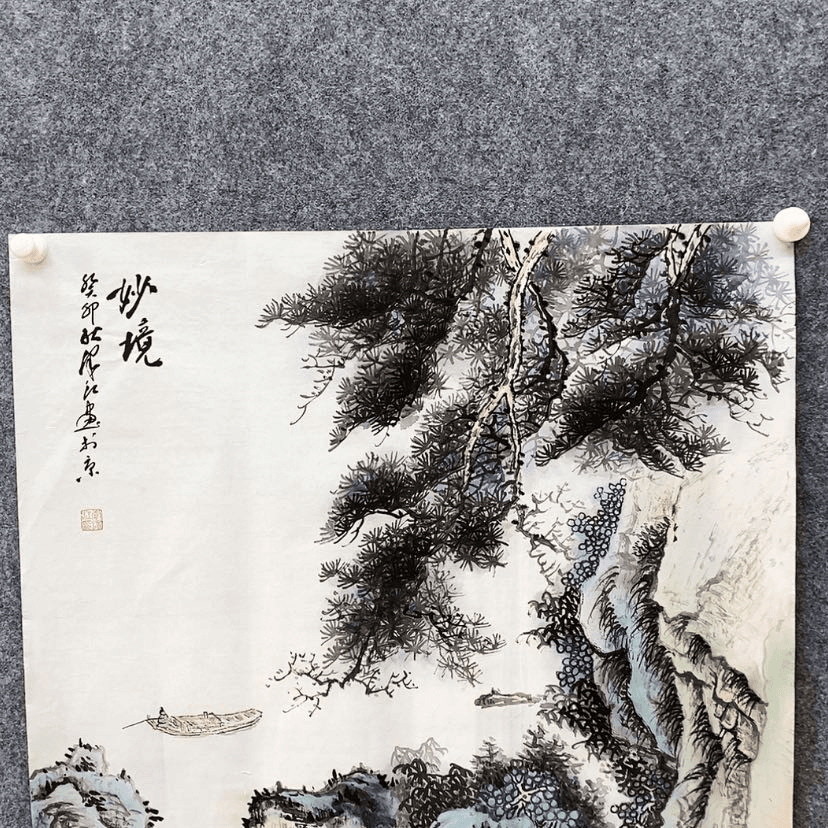 妙境
癸卯秋泽江画于京